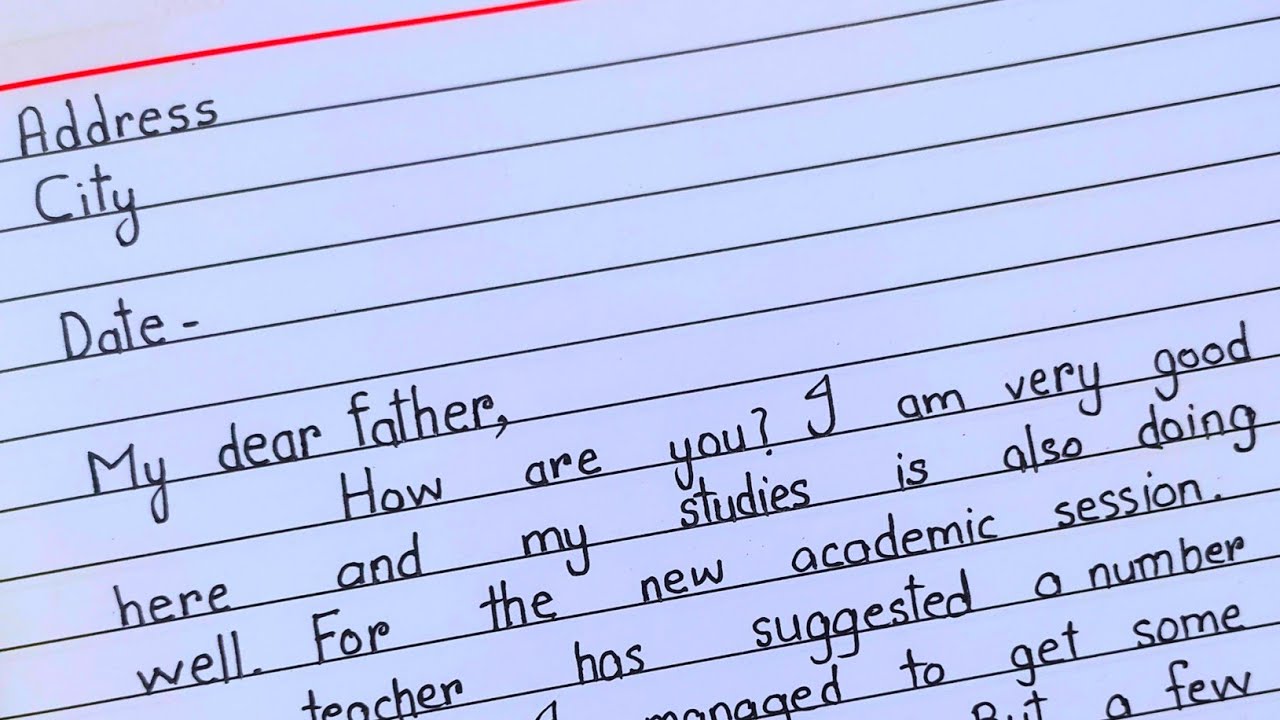 Address
City
Date -
My dear father,
How are you? I am very good
here and my studies is also doing
well. For the new academic session.
teacher has suggested a number
I managed to get some
But a few